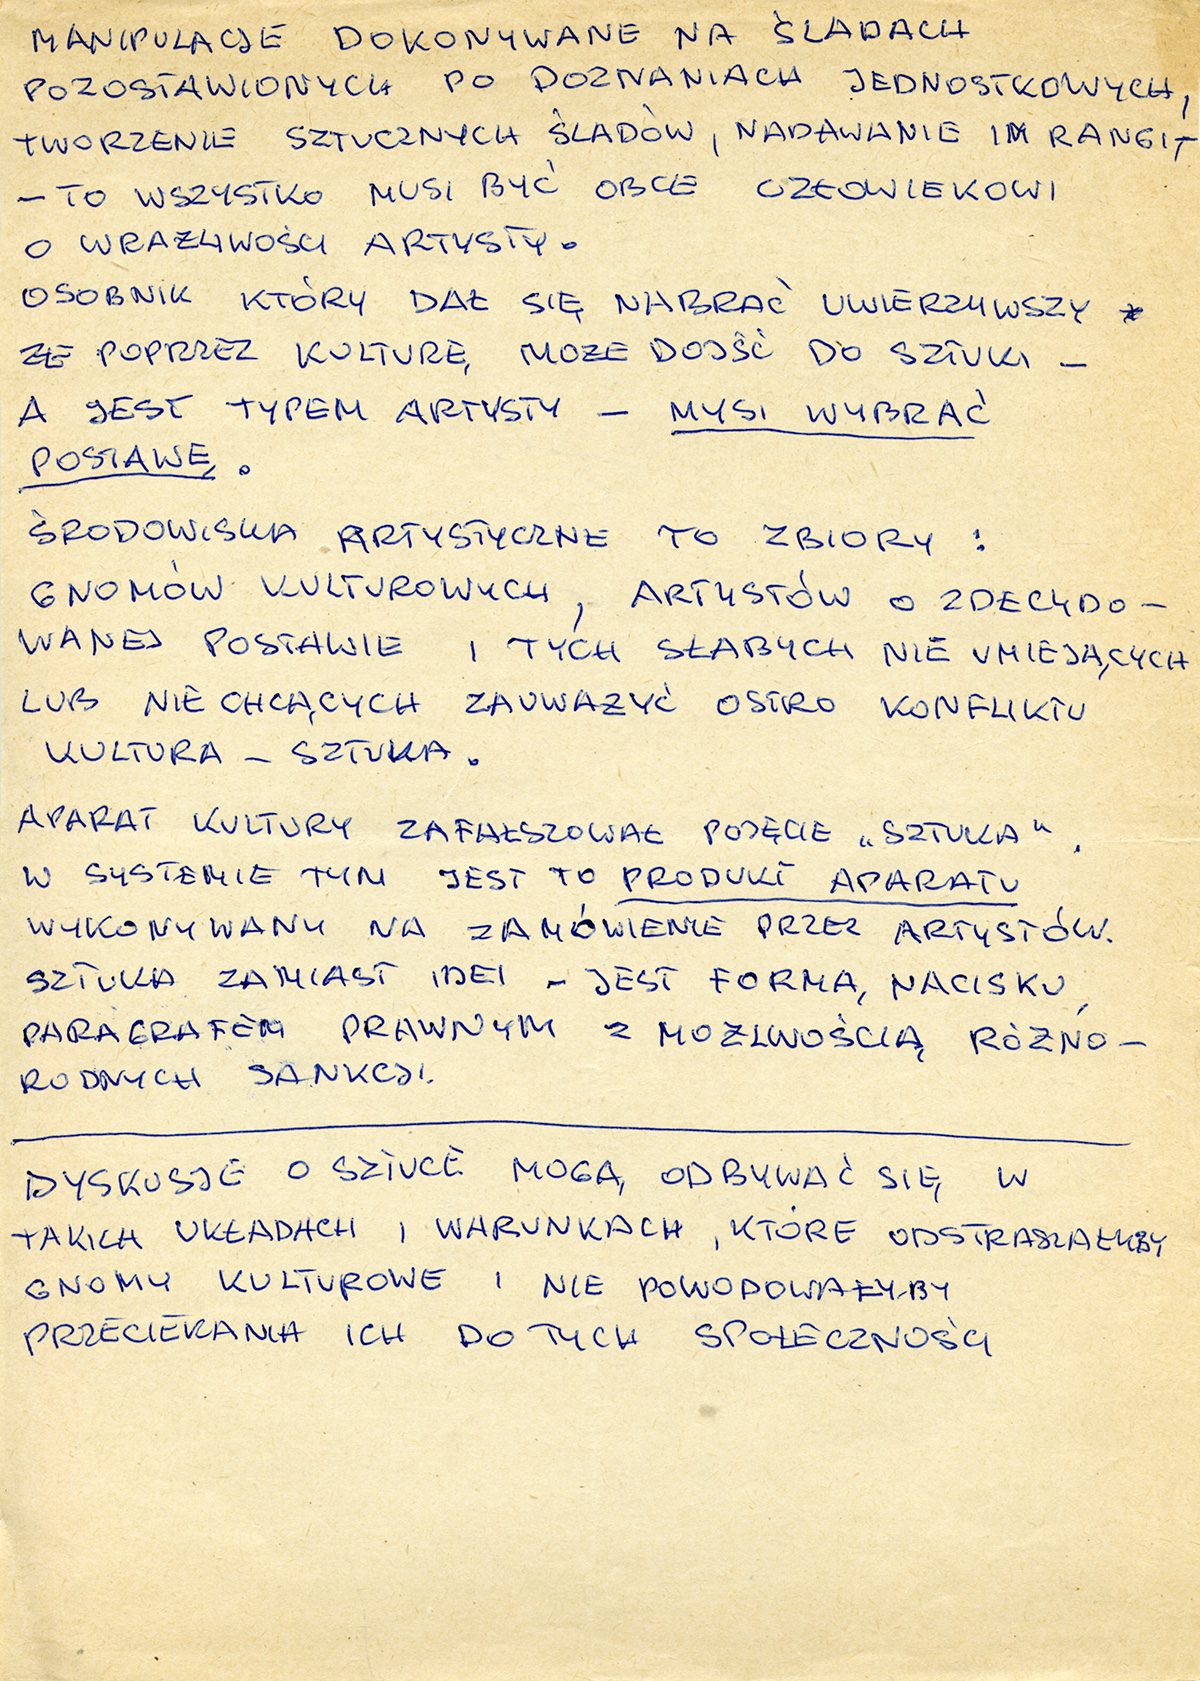 MANIPULACJE DOKONYWANE NA ŚLADACH
POZOSTAWIONYCH PO DOZNANIACH JEDNOSTKOWYCH,
TWORZENIE SZTUCZNYCH ŚLADÓW, NADAWANIE IM RANGI
– TO WSZYSTKO MUSI BYĆ OBCE CZŁOWIEKOWI
O WRAŻLIWOŚCI ARTYSTY.
OSOBNIK KTÓRY DAŁ SIĘ NABRAĆ UWIERZYWSZY
ŻE POPRZEZ KULTURĘ, MOŻE DOJŚĆ DO SZTUKI –
A JEST TYPEM ARTYSTY – MUSI WYBRAĆ
POSTAWĘ.
ŚRODOWISKA ARTYSTYCZNE TO ZBIORY :
GNOMÓW KULTUROWYCH, ARTYSTÓW O ZDECYDO–
WANEJ POSTAWIE I TYCH SŁABYCH NIE UMIEJĄCYCH
LUB NIE CHCĄCYCH ZAUWAŻYĆ OSTRO KONFLIKTU
KULTURA – SZTUKA.
APARAT KULTURY ZAFAŁSZOWAŁ POJĘCIE „SZTUKA".
W SYSTEMIE TYM JEST TO PRODUKT APARATU
WYKONYWANY NA ZAMÓWIENIE PRZEZ ARTYSTÓW.
SZTUKA ZAMIAST IDEI – JEST FORMĄ NACISKU,
PARAGRAFEM PRAWNYM Z MOŻLWOŚCIĄ RÓŻNO–
RODNYCH SANKCJI.
DYSKUSJE O SZTUCE MOGĄ ODBYWAĆ SIĘ W
TAKICH UKŁADACH I WARUNKACH, KTÓRE ODSTRASZAŁYBY
GNOMY KULTUROWE I NIE POWODOWAŁYBY
PRZECIEKANIA ICH DO TYCH SPOŁECZNOŚCI